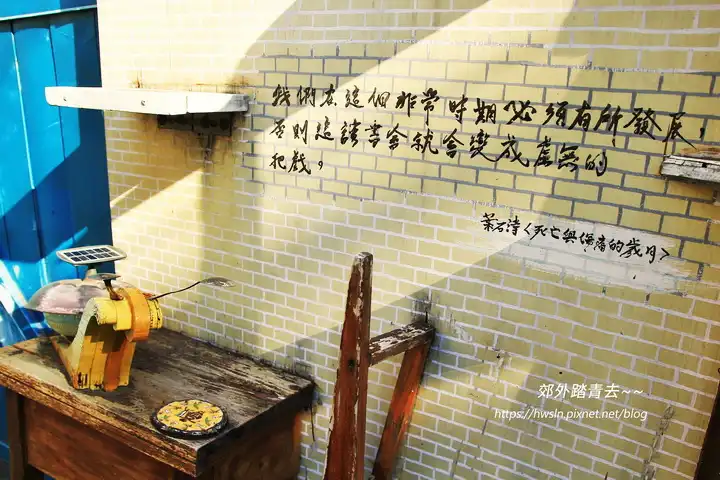 我們在這個非常時期必須有所發展，
否則這讀書会就會變成虛無的
把戲。
葉石濤<死亡與倖存的歲月>
郊外踏青去~~
https://hwsln.pixnet.net/blog